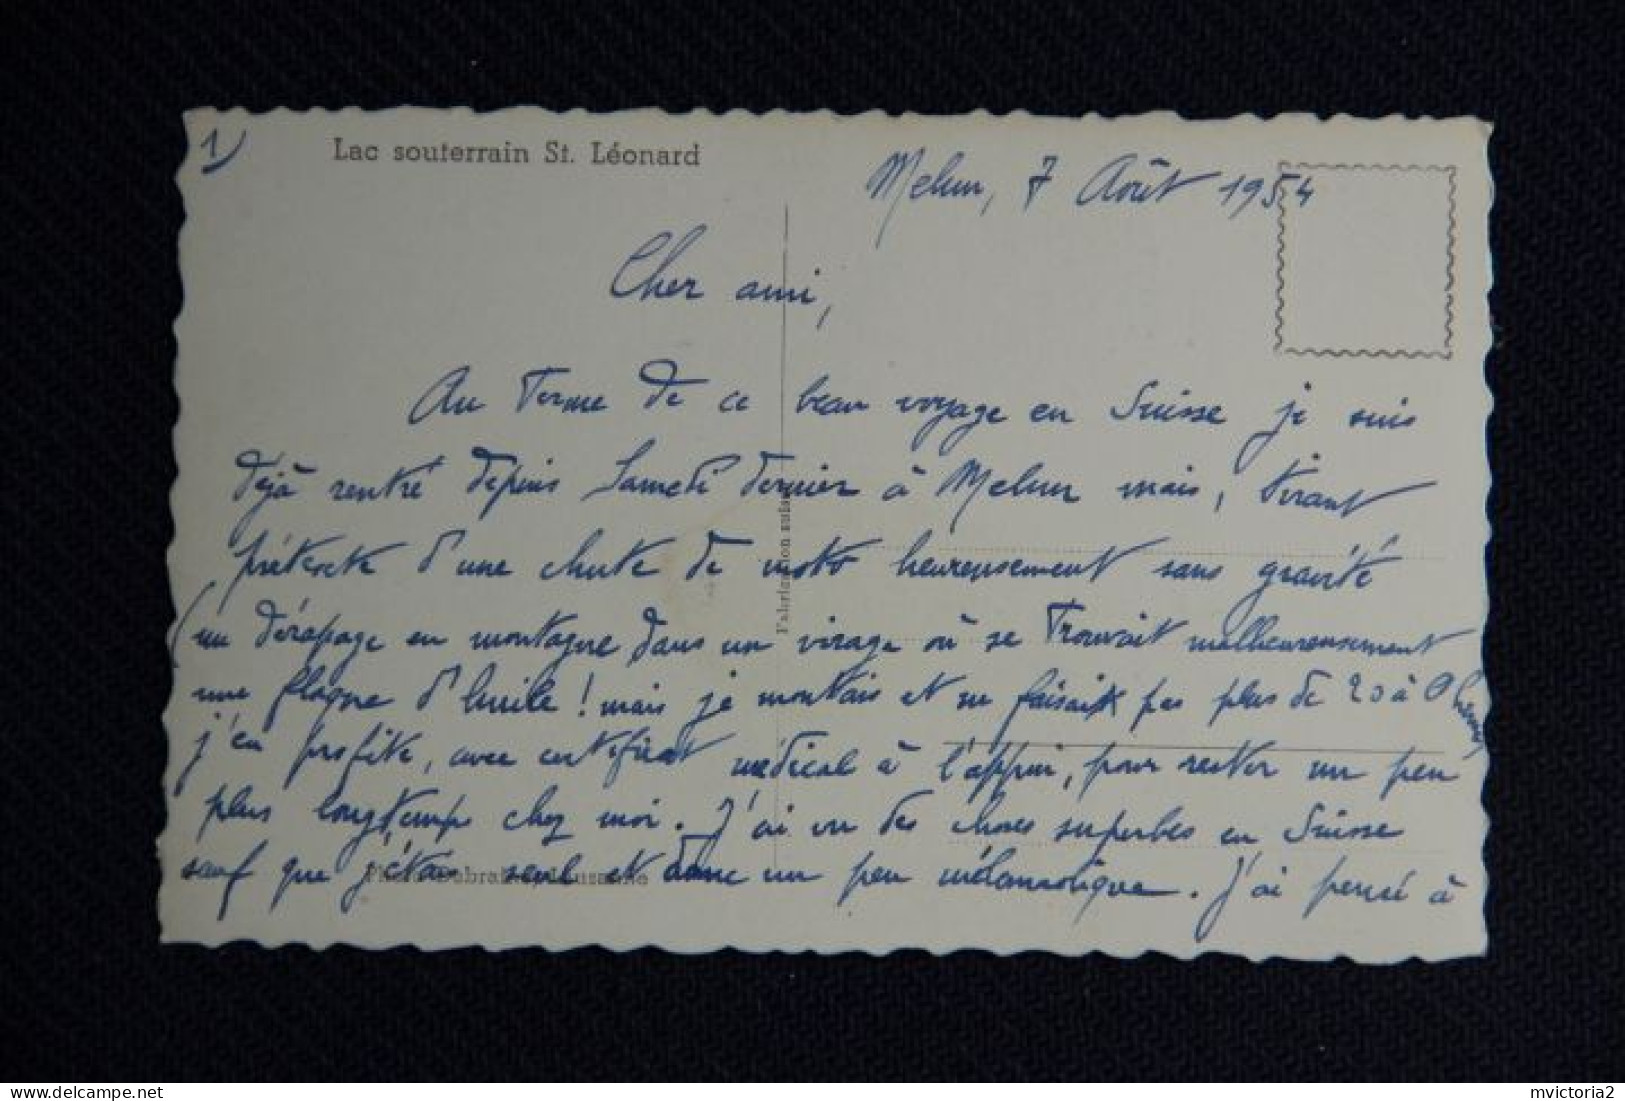 1)
Lac souterrain St. Léonard
Melun, 7 Août 1954
Cher ami,
Au terme de ce beau voyage en Suisse je suis
déjà rentré depuis Samedi dernier à Melun mais, tirant
prétexte d'une chute de moto heureusement sans gravité
(un dérapage en montagne dans un virage où se trouvait malheureusement
une flaque d'huile ! mais je montais et ne faisais pas plus de 20 à l'heure)
j'en profite, avec certificat médical à l'appui, pour rester un peu
plus longtemps chez moi. J'ai vu des choses superbes en Suisse
sauf que j'étais seul et donc un peu mélancolique. J'ai pensé à
Fabrication suisse
mvictoria2